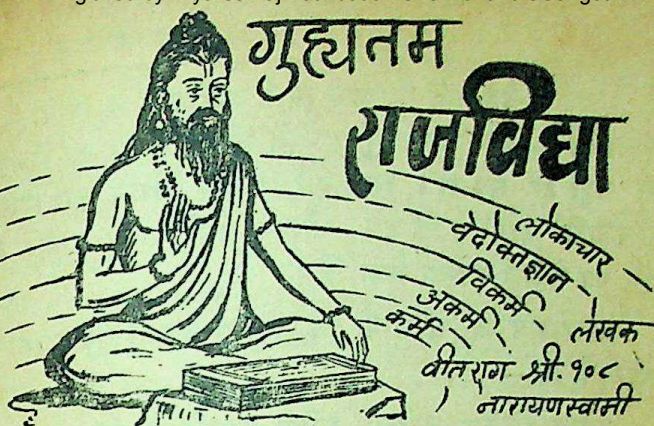 गुह्यतम
राजविद्या
लोकाचार
वेदोक्तज्ञान
विकर्म
अकर्म
कर्म
लेखक
वीतराग श्री. १०८
नारायणस्वामी